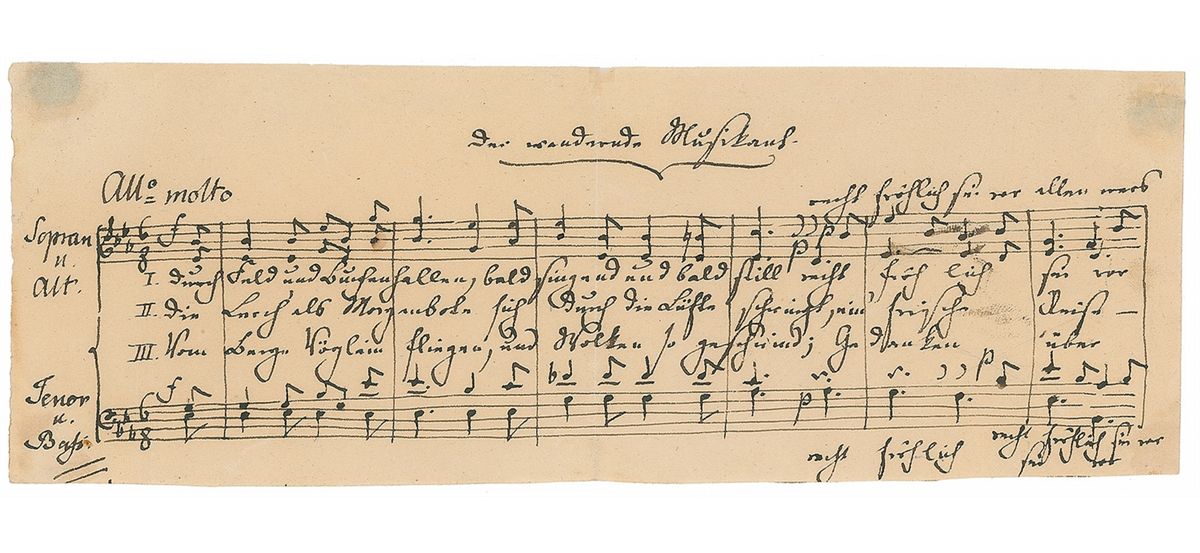 der wandernde Musikant.
All<sup>o</sup> molto
recht fröhlich sei vor allen wers
Sopran
u.
Alt.
f
p
I. durch Feld und Buchenhallen, bald singend und bald still recht fröh lich sei vor
II. die Lerch' als Morgenbote sich durch die Lüfte schwingt, ein' frische Reise –
III Vom Berge Vöglein fliegen, und Wolken so geschwind; Gedanken über
Tenor
u.
Baß.
f
p
p
recht fröhlich sei vor
recht fröhlich sei vor